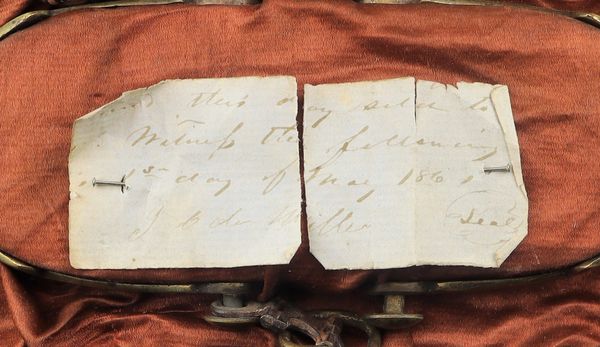 this day sold to
Witness the following
1st day of May 186
Miller Seal